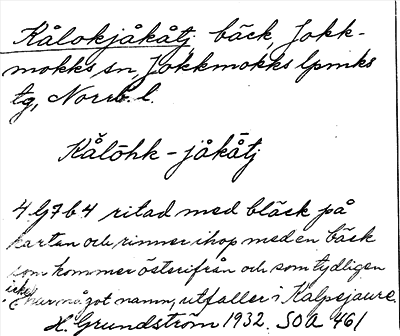 Kålokjåkåtj, bäck, Jokk-
mokks sn, Jokkmokks lpmks
tg, Norrb. l.
Kålōhk - jåkåtj
4 G7b4 ritad med bläck på
kartan och rinner ihop med en bäck
som kommer österifrån och som tydligen
icke har något namn, utfaller i Kalpsjaure.
H. Grundström 1932. SOA 461